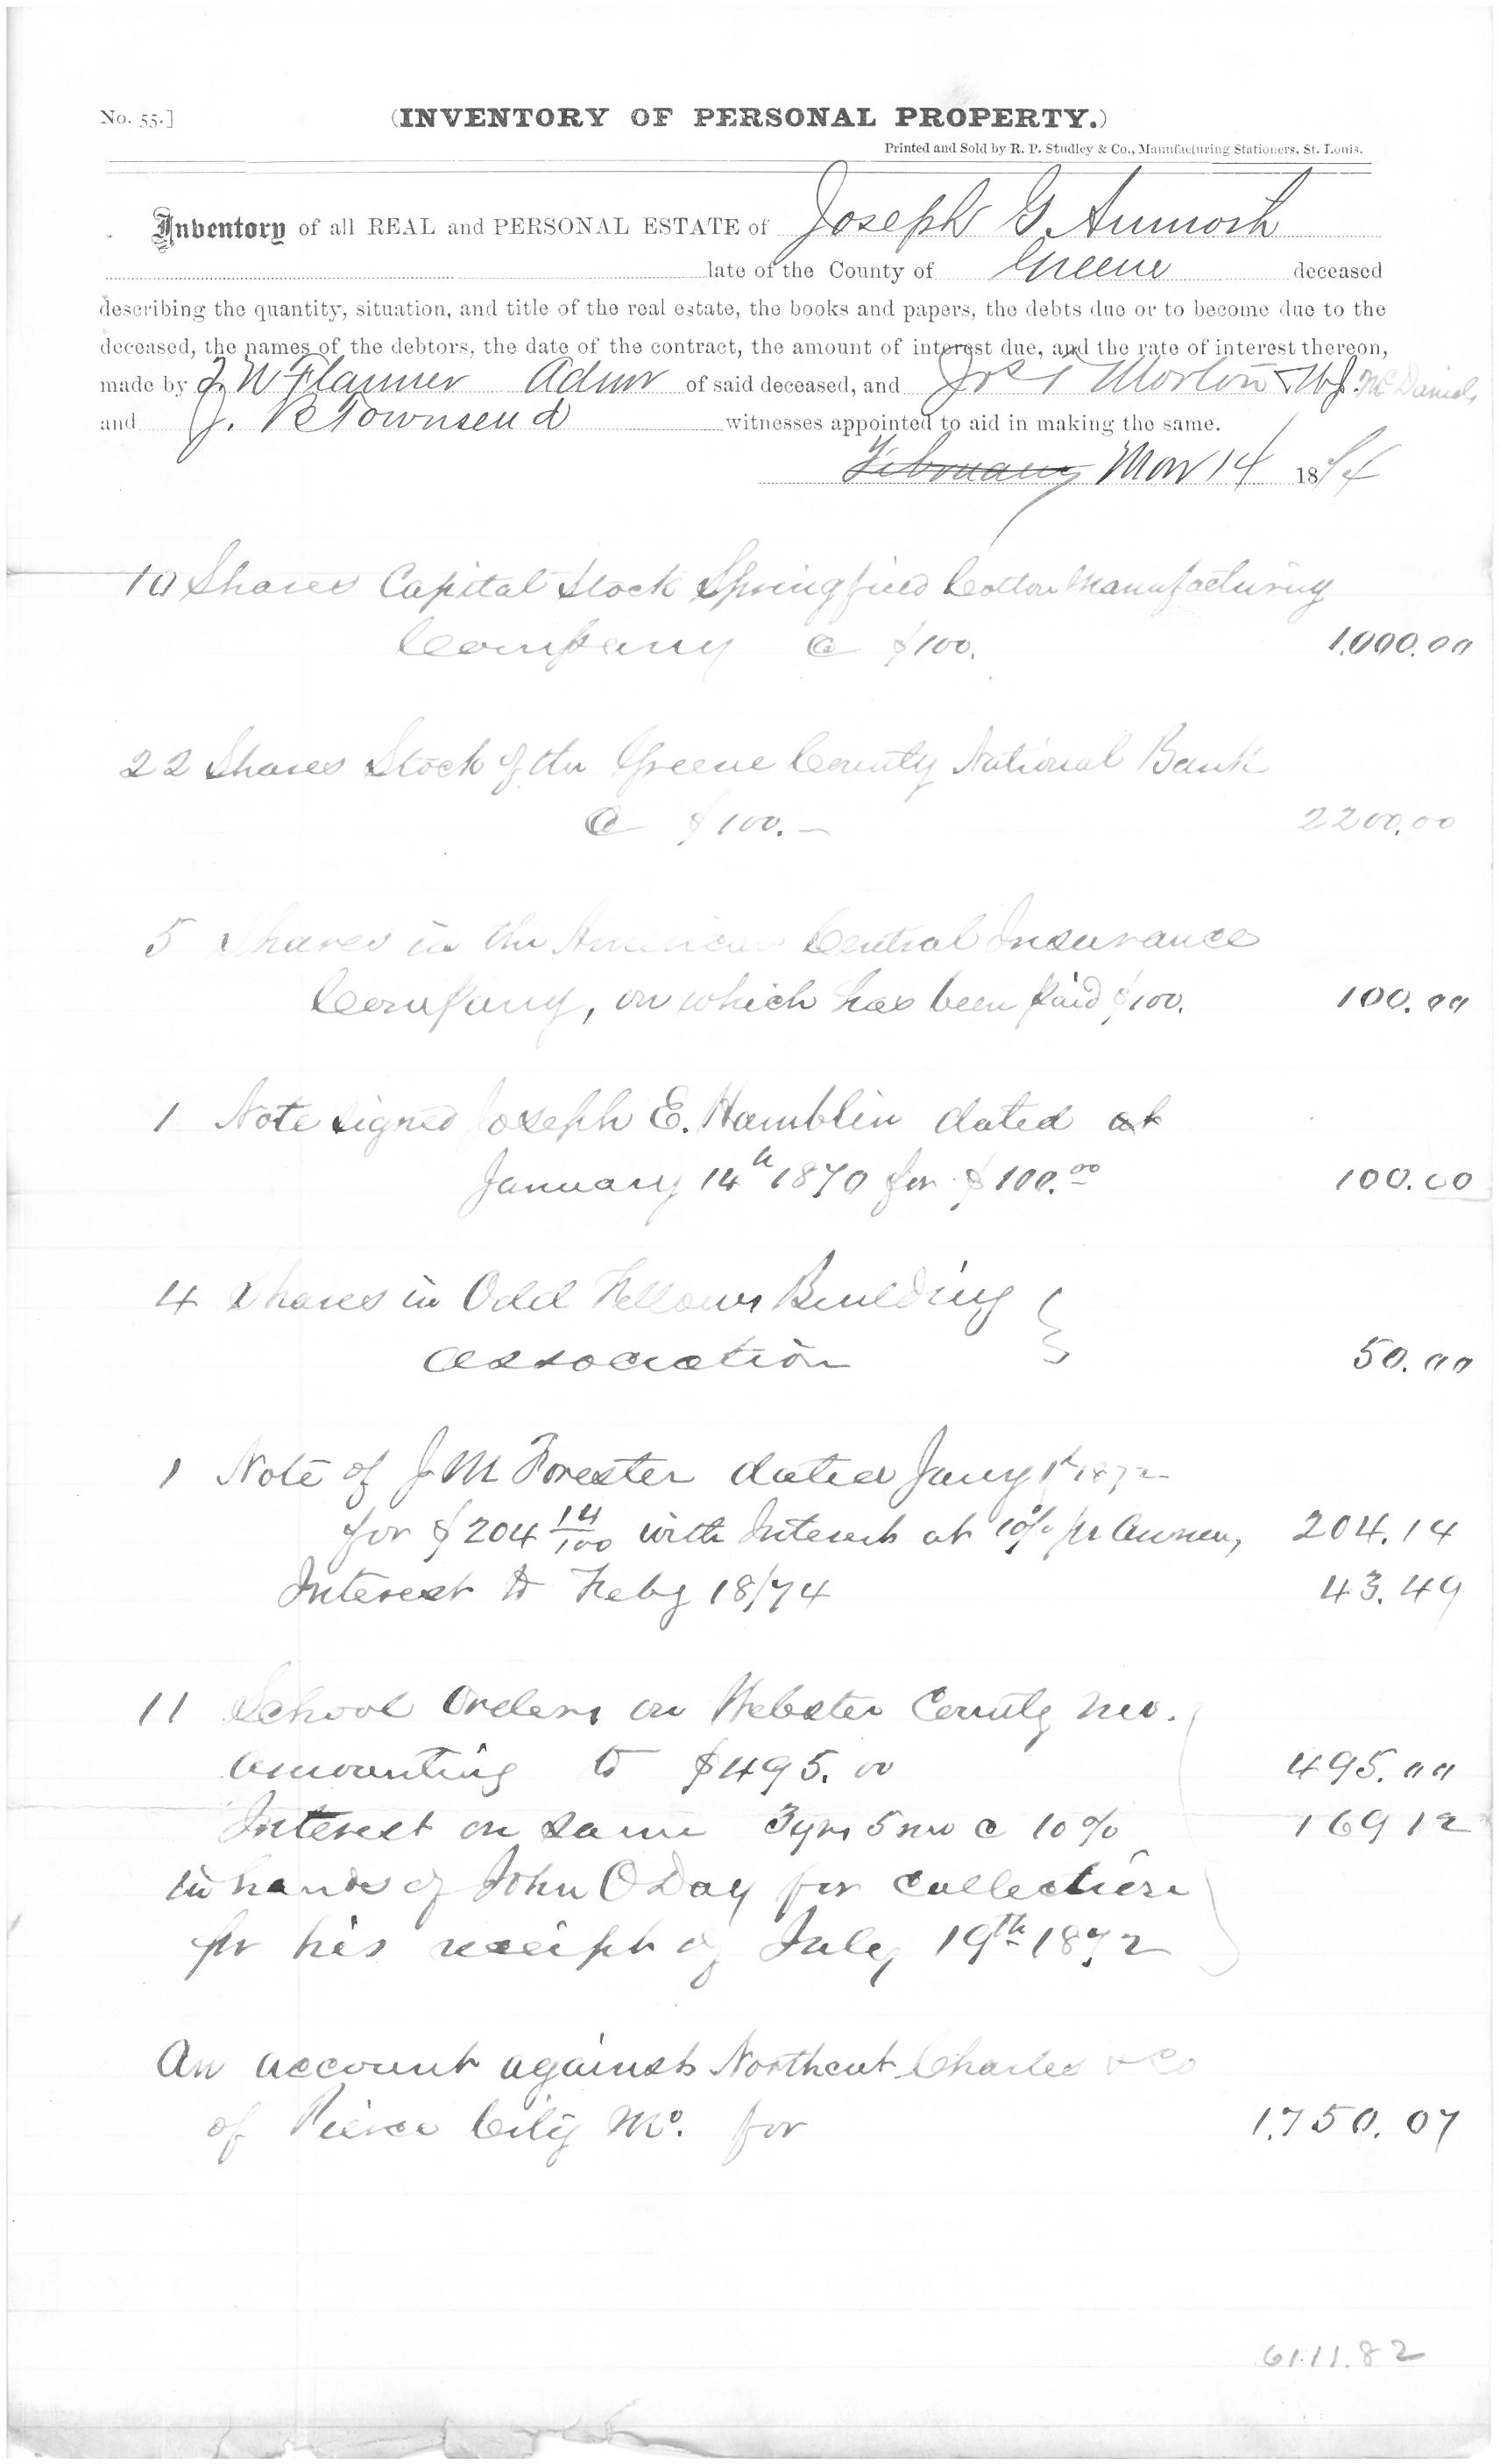 No. 55.]
(INVENTORY OF PERSONAL PROPERTY.)
Printed and Sold by R. P. Studley & Co., Manufacturing Stationers, St. Louis.
Inventory of all REAL and PERSONAL ESTATE of Joseph G.
late of the County of Greene deceased
describing the quantity, situation, and title of the real estate, the books and papers, the debts due or to become due to the
deceased, the names of the debtors, the date of the contract, the amount of interest due, and the rate of interest thereon,
made by J. W Flanner Admr of said deceased, and Jos T Morton & W J. McDaniels
and J. R Townsend witnesses appointed to aid in making the same.
February Mar 14 1874
10 Shares Capital Stock Springfield Cotton Manufacturing
Company @ $100. 1.000.00
22 Shares Stock of the Greene County National Bank
@ $100.— 2200.00
5 Shares in the American Central Insurance
Company, on which has been paid $100. 100.00
1 Note signed Joseph E. Hamblin dated at
January 14th 1870 for $100.00 100.00
4 Shares in Odd Fellows Building
Association 50.00
1 Note of J M Forester dated Jany 1st 1872
for $204 14/100 with Interest at 10% pr Annum, 204.14
Interest to Feby 18/74 43.49
11 School Orders on Webster County Mo.
amounting to $495.00 495.00
Interest on same 3yrs 5mo @ 10% 169 12
in hands of John ODay for collection
pr his receipt of July 19th 1872
An account against Northcut Charles & Co
of Pierce City Mo. for 1.750.07
61.11.82